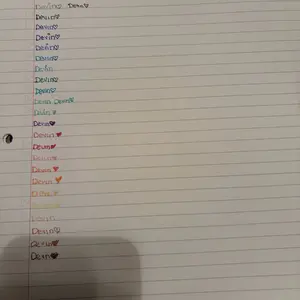 Devin♡ Devin♡
Devin♡
Devin♡
Devin♡
Devin♡
Devin♡
Devin
Devin♡
Devin♡
Devin Devin♡
Devin♡
Devin♥
Devin♥
Devin♥
Devin♥
Devin♥
Devin♥
Devin♥
Devin
Devin♡
Devin♥
Devin♥